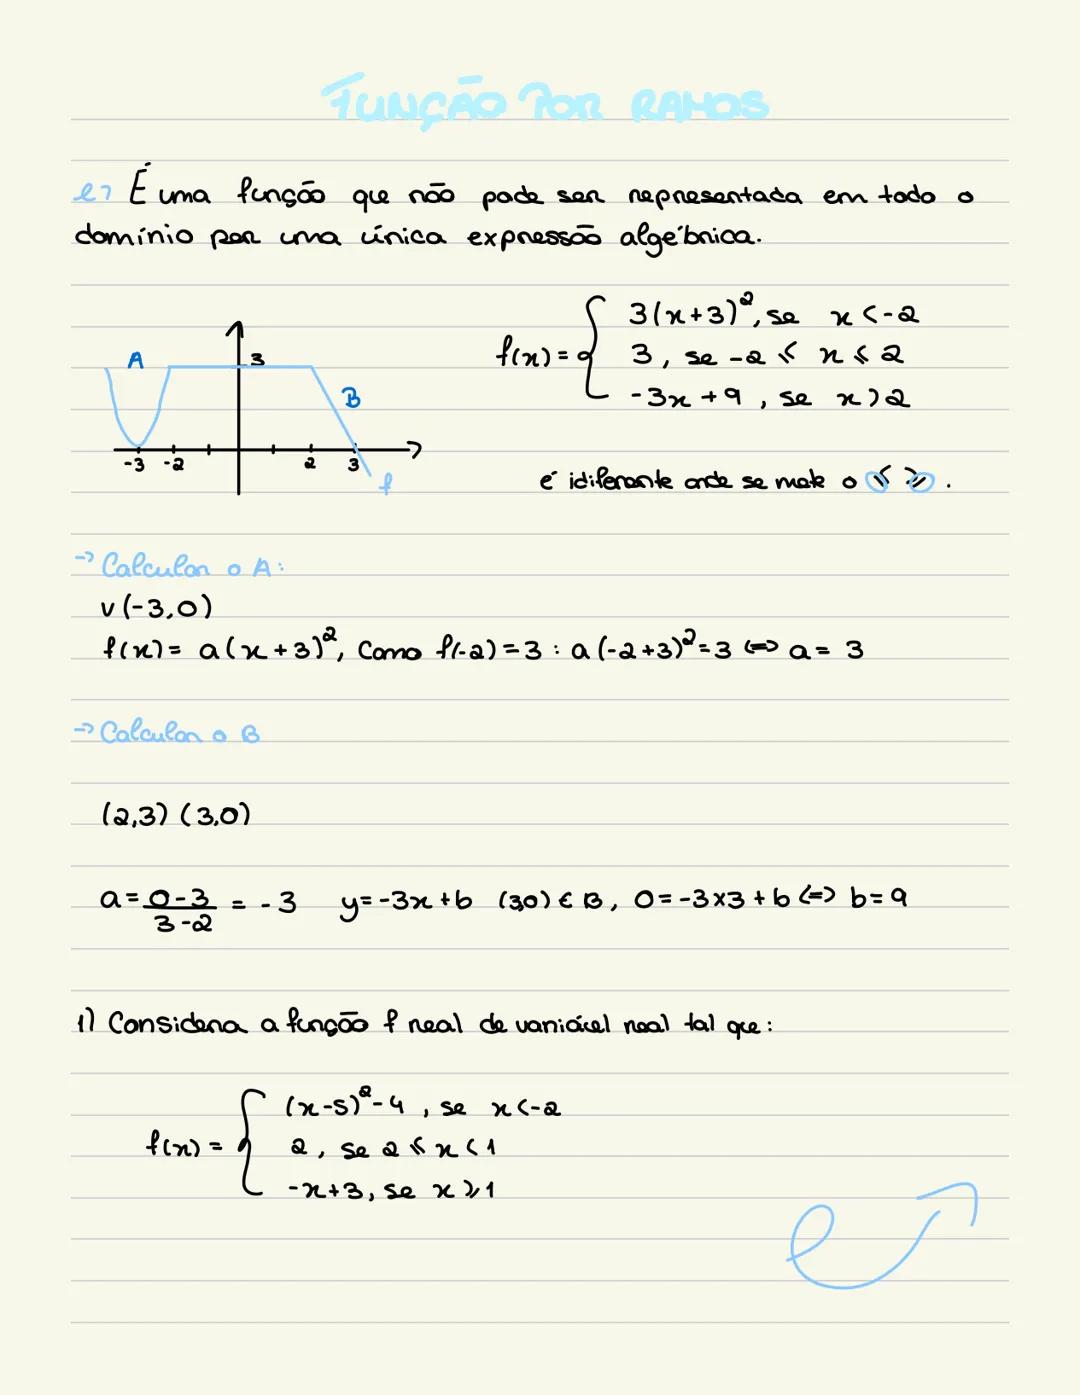 FUNÇÃO POR RAMOS
É uma função que não pode ser representada em todo o
domínio por uma única expressão algébrica.
3(x+3)², se x<-2
f(x)= 3, se -2 ⩽ x ⩽ 2
-3x+9, se x>2
A 3 B
-3 -2 2 3 f
é idiferente onde se mete o ⩽ ⩾.
→ Calcular o A:
v(-3,0)
f(x)= a(x+3)², Como f(-2)=3 : a(-2+3)²=3 <=> a= 3
→ Calcular o B
(2,3) (3,0)
a=0-3/3-2 = -3 y=-3x+b (3,0) ∈ B, 0=-3x3+b <=> b=9
1) Considera a função f real de variável real tal que:
(x-5)²-4, se x<-2
f(x)= 2, se 2 ⩽ x < 1
-x+3, se x ⩾ 1